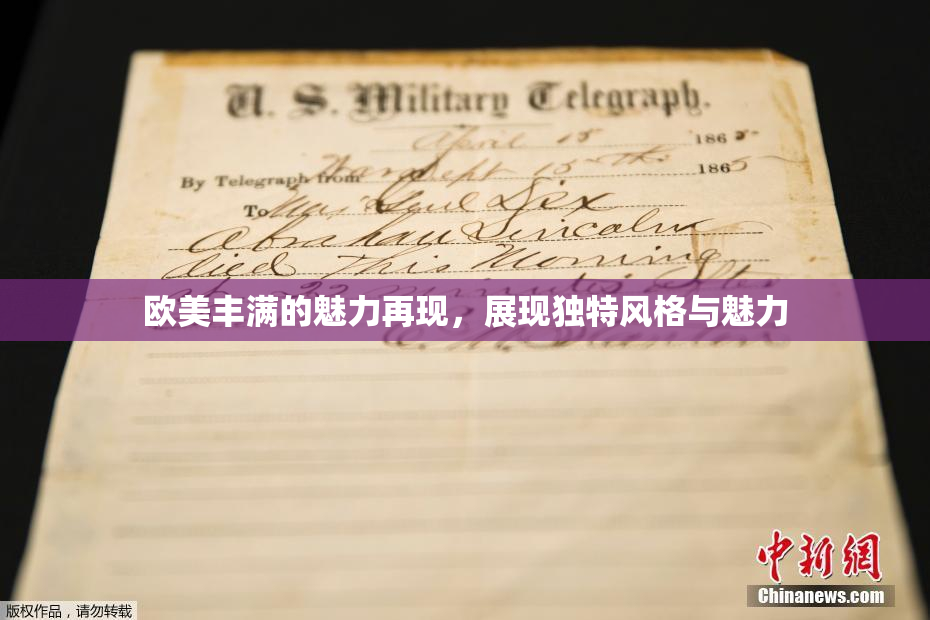 U. S. Military Telegraph.
April 15 1865
By Telegraph from War Dept 15th 1865
To Maj Genl Dix
Abraham Lincoln
died This Morning
at 22 minutes after
欧美丰满的魅力再现，展现独特风格与魅力
E. M. Stanton
中新网
Chinanews.com
版权作品，请勿转载